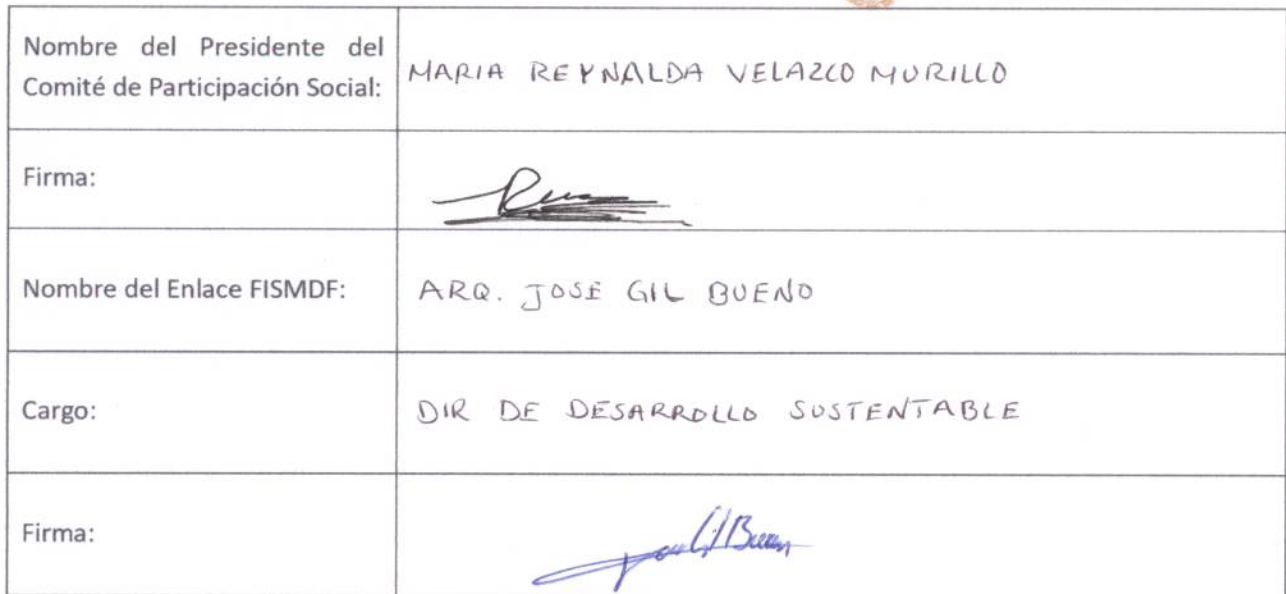 Nombre del Presidente del
Comité de Participación Social:
MARIA REYNALDA VELAZCO MURILLO
Firma:
Nombre del Enlace FISMDF:
ARQ. JOSE GIL BUENO
Cargo:
DIR DE DESARROLLO SUSTENTABLE
Firma: